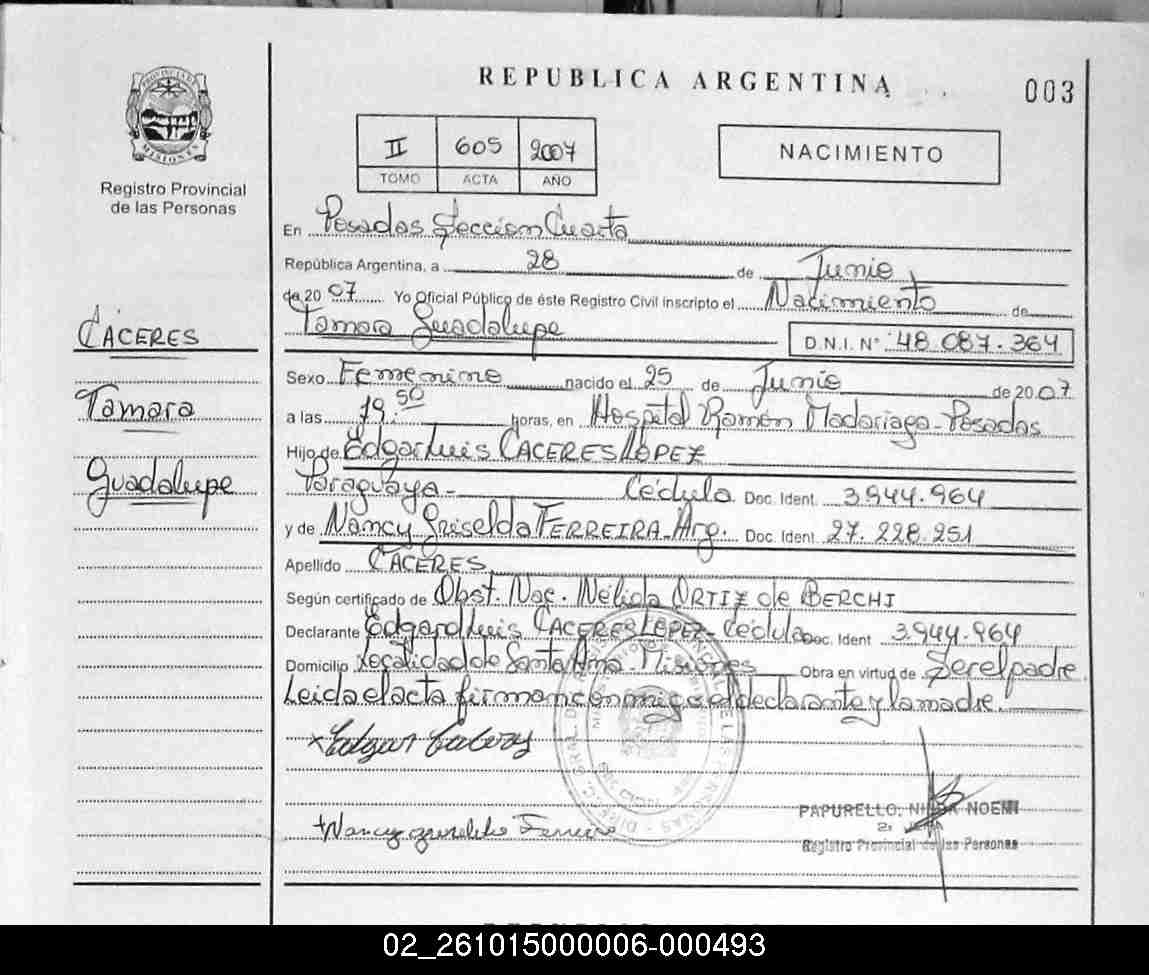 REPUBLICA ARGENTINA
003
PROVINCIA DE
MISIONES
Registro Provincial
de las Personas
II 605 2007
TOMO ACTA AÑO
NACIMIENTO
En Posadas Sección Cuarta
República Argentina, a 28 de Junio
de 20 07 Yo Oficial Público de éste Registro Civil inscripto el Nacimiento de
Tamara Guadalupe D.N.I. Nº 48.087.364
CÁCERES
Tamara
Guadalupe
Sexo Femenino nacido el 25 de Junio de 20 07
a las 19:50 horas, en Hospital Ramón Madariaga - Posadas
Hijo de Edgar Luis CACERES LOPEZ
Paraguaya - Cédula Doc. Ident. 3.944.964
y de Nancy Griselda FERREIRA - Arg. Doc. Ident. 27.228.251
Apellido CÁCERES
Según certificado de Obst. Nac. Nélida ORTIZ de BERCHI
Declarante Edgard Luis CACERES LOPEZ - Cédula Doc. Ident. 3.944.964
Domicilio Localidad de Santa Ana - Misiones Obra en virtud de Ser el padre
Leída el acta firman conmigo el declarante y la madre.
Nancy Griselda Ferreira
PAPURELLO, NILDA NOEMI
Registro Provincial de las Personas
02_261015000006-000493